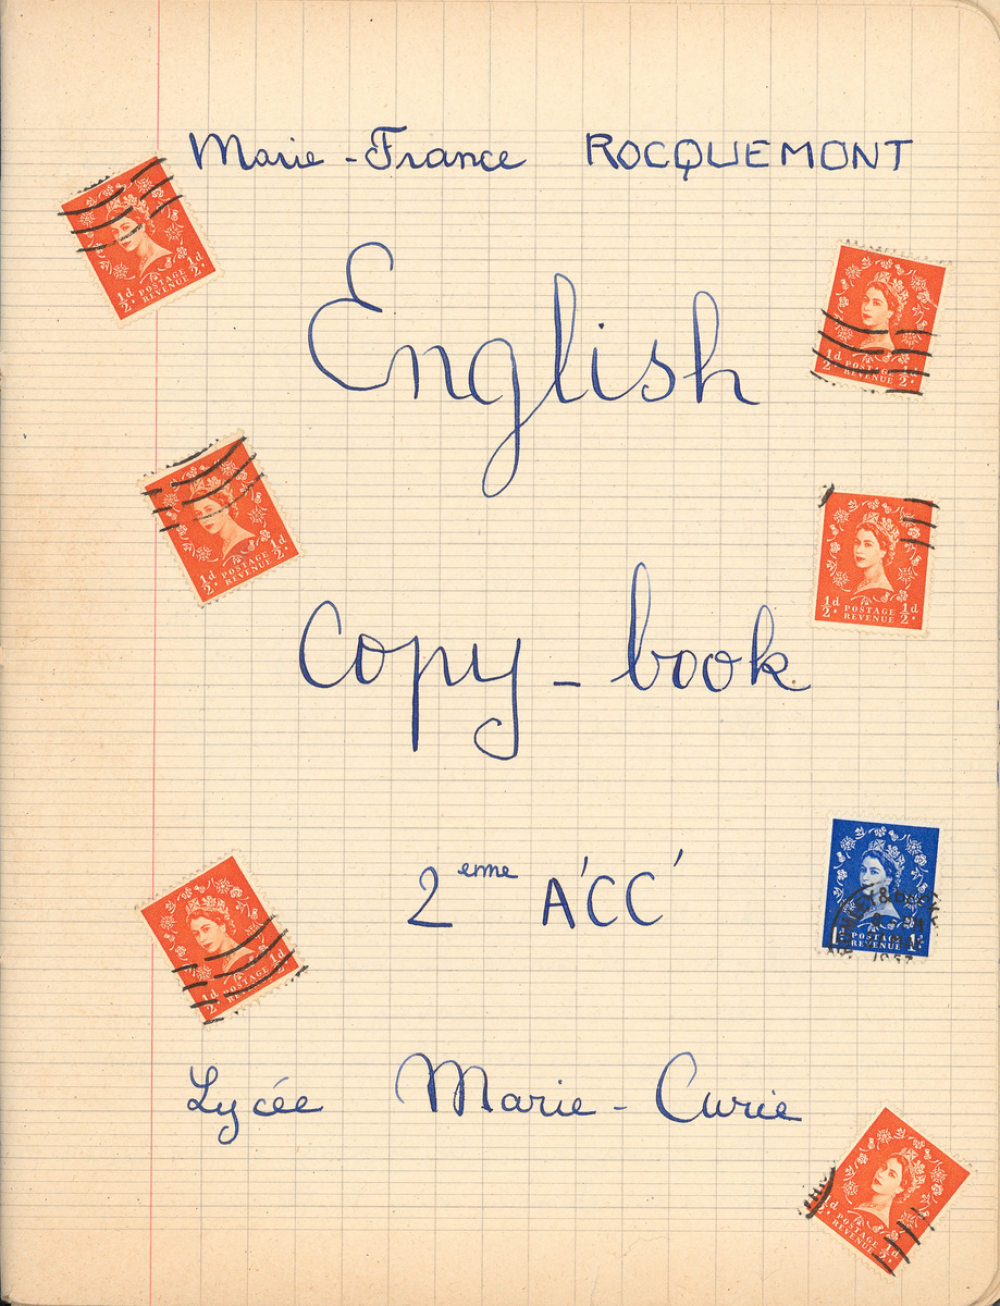 Marie-France ROCQUEMONT
English
Copy-book
2eme A'CC'
Lycée Marie-Curie
1/2d POSTAGE REVENUE 1/2d
1/2d POSTAGE REVENUE 1/2d
1/2d POSTAGE REVENUE 1/2d
1/2d POSTAGE REVENUE 1/2d
POSTAGE REVENUE
1/2d POSTAGE REVENUE 1/2d
1/2d POSTAGE REVENUE 1/2d